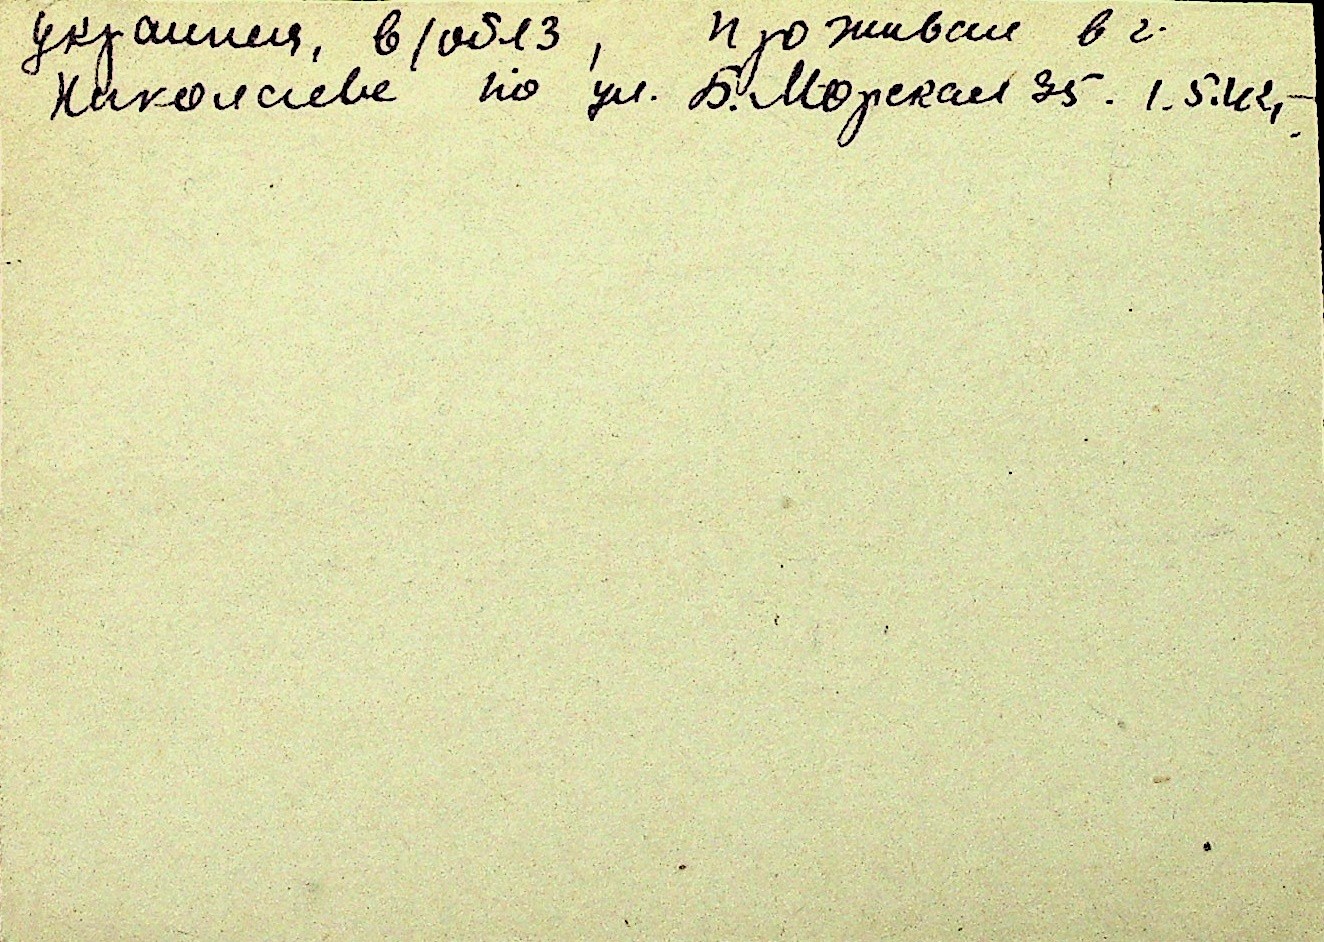 украинец, в/обяз, проживал в г.
Николаеве по ул. Б. Морская 35. 1.5.42,